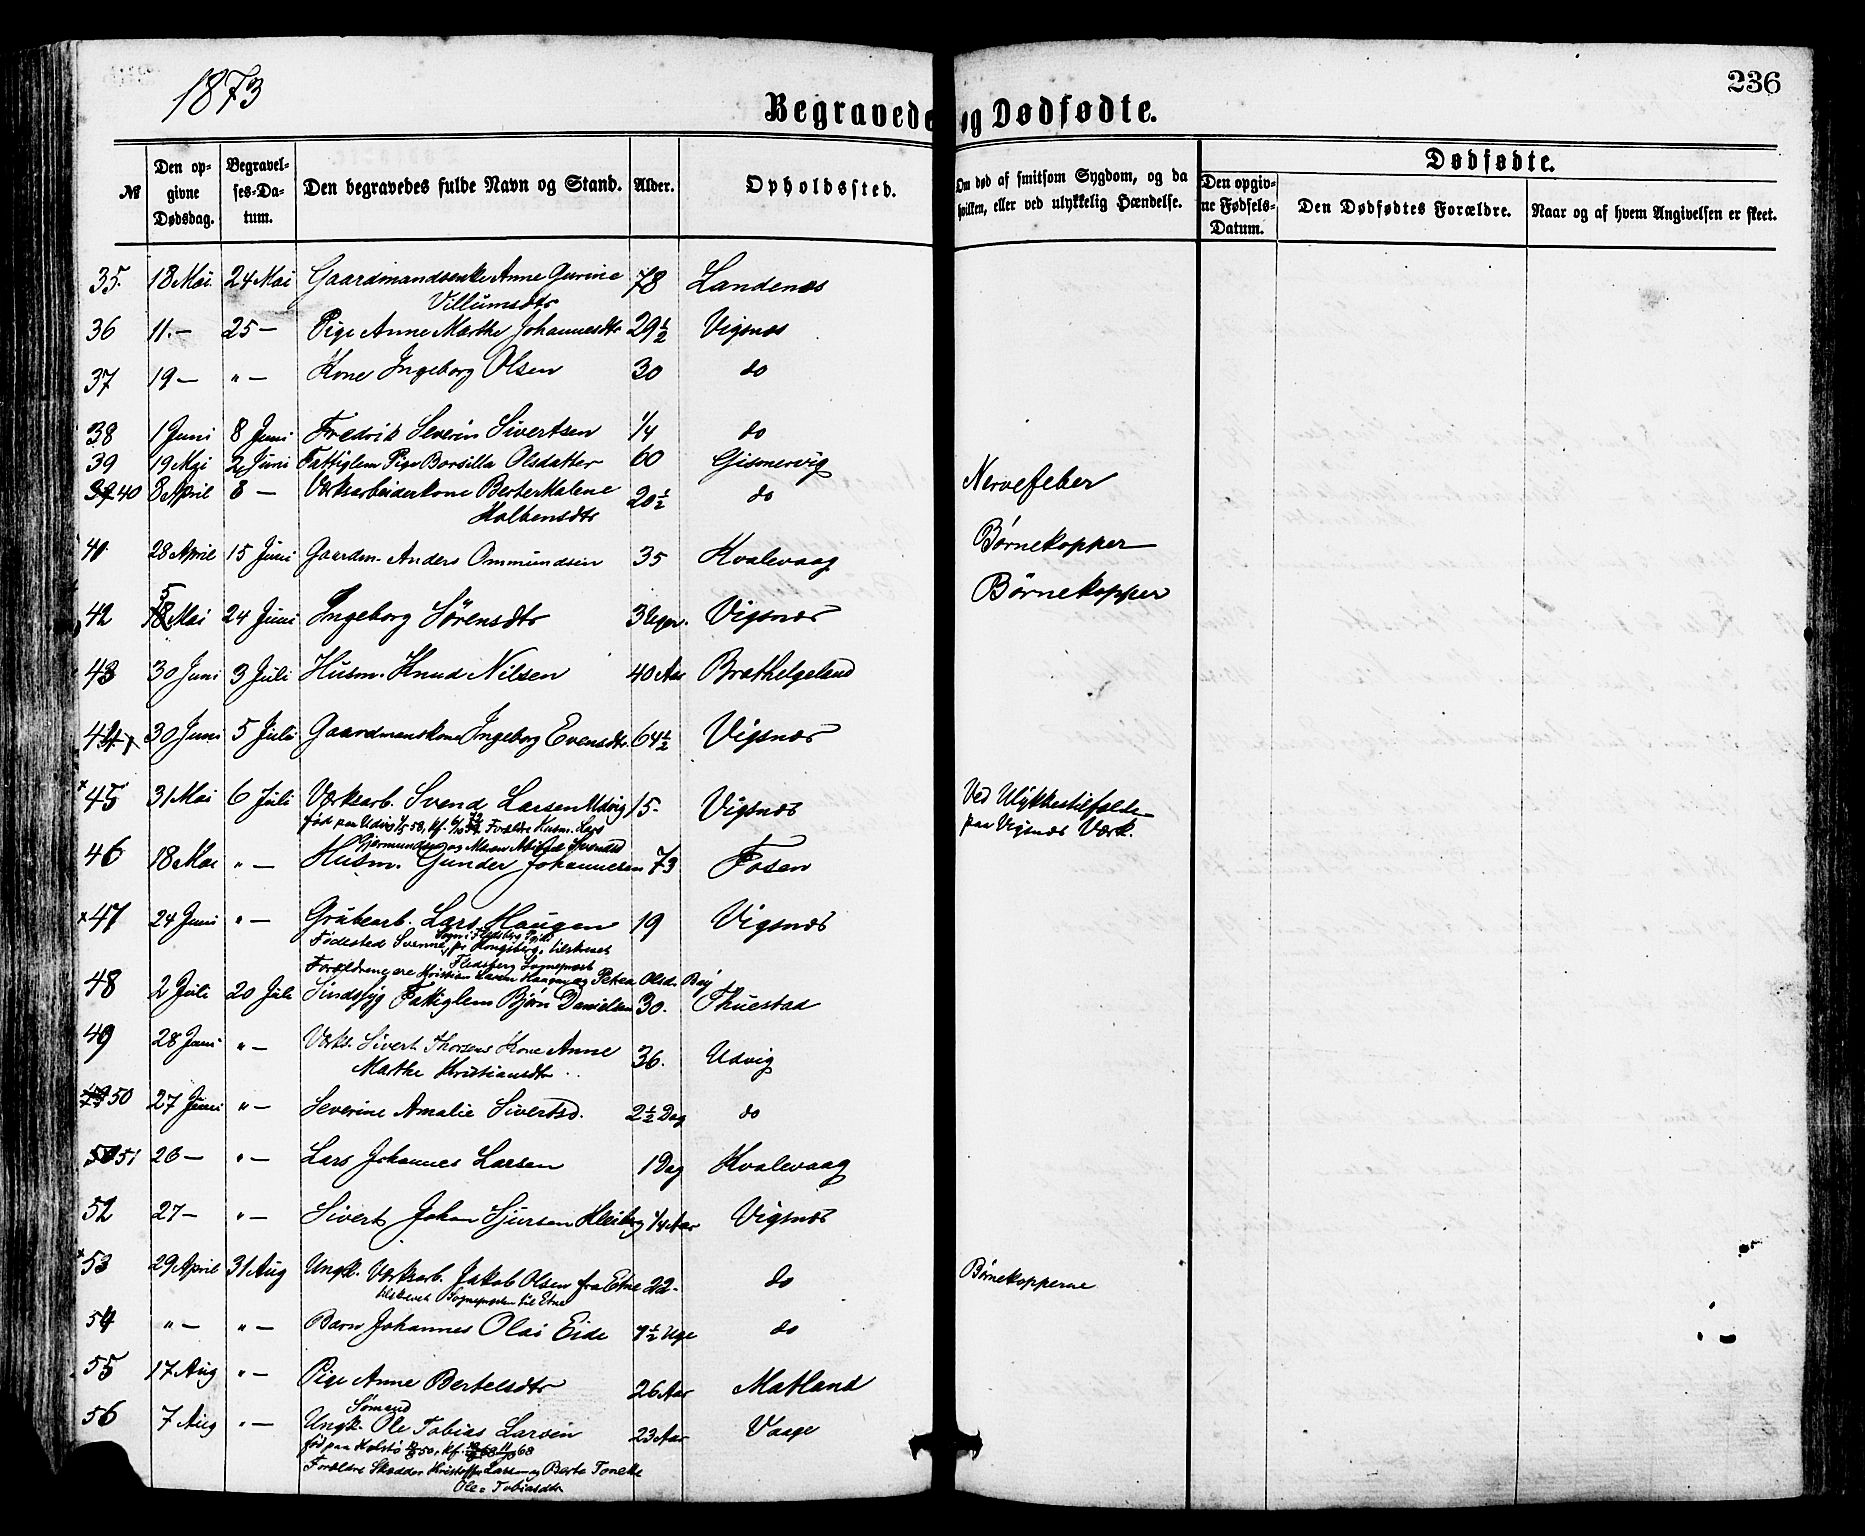 1873
236
Begravede og Dødfødte.
№
Den opgivne Dødsdag.
Begravelses-Datum.
Den begravedes fulde Navn og Stand.
Alder.
Opholdssted.
Om død af smitsom Sygdom, og da hvilken, eller ved ulykkelig Hændelse.
Dødfødte.
Den opgivne Fødsels-Datum.
Den Dødfødtes Forældre.
Naar og af hvem Angivelsen er skeet.
35. 18 Mai 24 Mai Gaardmandsenke Anne Gurine 78 Landenæs
Villumsdtr
36 11.— 25— Pige Anne Marthe Johannesdtr 29½ Vigsnæs
37 19— "— Kone Ingeborg Olsen 30 do
38 1 Juni 8 Juni Fredrik Severin Sivertsen 1/4 do
39 19 Mai 2 Juni Fattiglem Pige Borsilla Olsdatter 60 Gismervig
40 8 April 8— Værksarbeiderkone Berte Malene 20½ do Nervefeber
Kolbensdtr
41 28 April 15 Juni Gaardm. Anders Ommundsen 35 Kvalevaag Børnekopper
42 5 Mai 24 Juni Ingeborg Sörensdtr 3 Uger. Vigsnæs Børnekopper
43 30 Juni 3 Juli Husm. Knud Nilsen 40 Aar Brathelgeland
44 30 Juni 5 Juli Gaardmanskone Ingeborg Evensdtr. 64½ Vigsnæs
45 31 Mai 6 Juli Værksarb. Svend Larsen Udvig 15. Vigsnæs Ved Ulykkestilfælde
paa Vigsnæs Værk.
født paa Udvig 58, Kf. Forældre Husm. Lars
46 18 Mai "— Husm. Gunder Johannesen 73 Fosen
47 24 Juni "— Grubearb. Lars Haugen 19 Vigsnæs
Fødested Svenne, pr Kongsberg, tilskrevet
Flesberg Sognepræst
Forældrene ere Kristian Larsen Haugen og Petrea Olsd. Bøy
48 2 Juli 20 Juli Sindssyg Fattiglem Björn Danielsen 30. Thuestad
49 28 Juni "— Værks. Sivert Thorsens Kone Anne 36. Udvig
Marthe Kristiansdtr
50 27 Juni "— Severine Amalie Sivertsd. 2½ Dag do
51 26— "— Lars Johannes Larsen 1 Dag Kvalevaag
52 27— "— Sivert Johan Sjursen Kleiberg 1/4 Aar Vigsnæs
53 29 April 31 Aug Ungk. Værksarb. Jakob Olsen fra Etne 22- do Børnekopperne
tilskrevet Sognepræsten til Etne
54 "— "— Barn Johannes Olai Eide ½ Uge do
55 17 Aug "— Pige Anne Bertelsdtr 26 Aar Matland
Sömand
56 7 Aug "— Ungk. Ole Tobias Larsen 23 Aar Vaage
født paa Kolstø 50, Kf. 68
Forældre Skrædder Kristoffer Larsen og Berta Tonette
Ole= Tobiasdtr